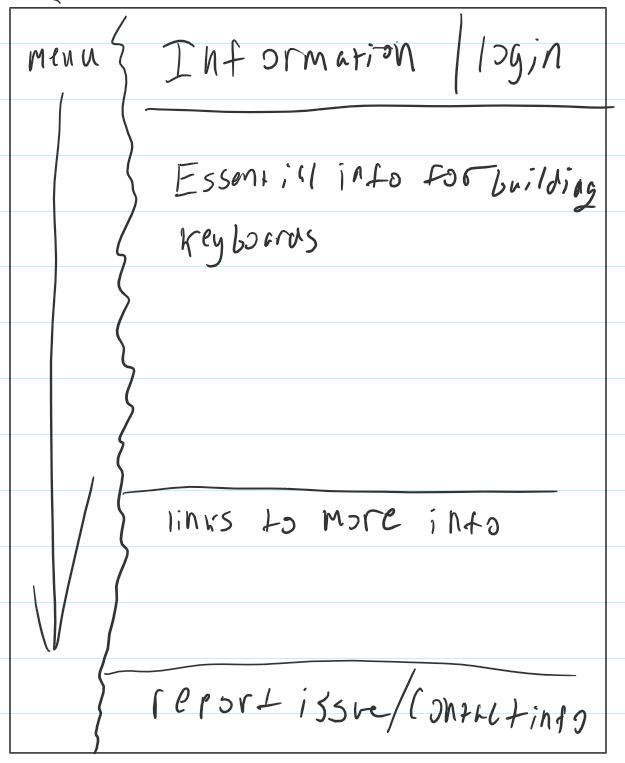 menu
Information | login
Essential info for building
keyboards
links to more info
report issue/Contact info